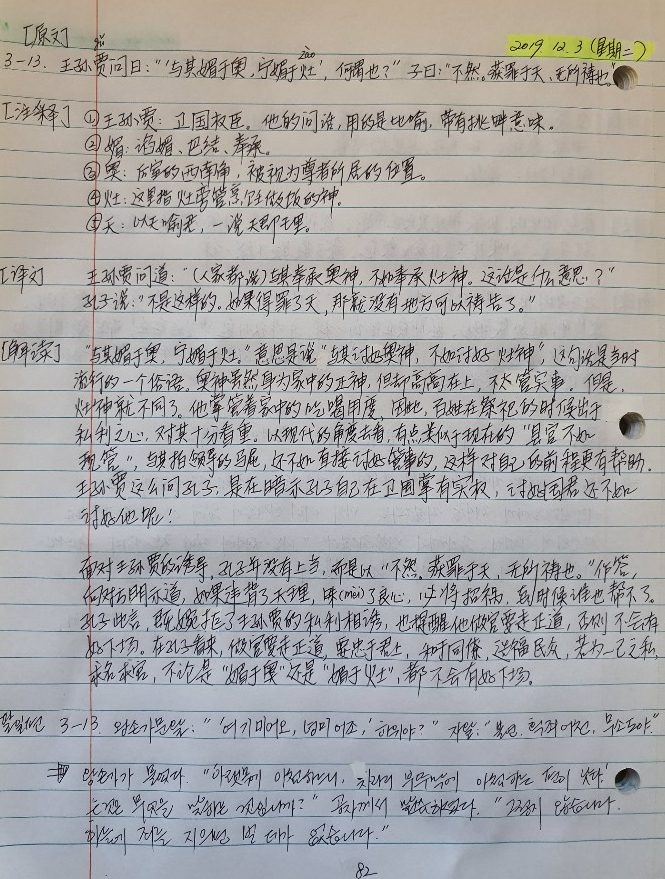 [原文]
2019.12.3 (星期二)
3-13. 王孙贾问曰："'与其媚于奥,宁媚于灶',何谓也？" 子曰："不然。获罪于天,无所祷也。"
[注释] ①王孙贾：卫国权臣。他的问话,用的是比喻,带有挑衅意味。
②媚：谄媚、巴结、奉承。
③奥：后室的西南角,被视为尊者所居的位置。
④灶：这里指灶旁管烹饪做饭的神。
⑤天：以天喻君,一说天即理。
[译文] 王孙贾问道："(人家都说)与其奉承奥神,不如奉承灶神。这话是什么意思？"
孔子说："不是这样的。如果得罪了天,那就没有地方可以祷告了。"
[解读] "与其媚于奥,宁媚于灶。"意思是说"与其讨好奥神,不如讨好灶神",这句话是当时
流行的一个俗语。奥神虽然身为家中的正神,但却高高在上,不大管实事。但是,
灶神就不同了。他掌管着家中的吃喝用度,因此,百姓在祭祀的时候出于
私利之心,对其十分看重。以现代的角度去看,有点类似于现在的"县官不如
现管",与其拍领导的马屁,还不如直接讨好管事的,这样对自己的前程更有帮助。
王孙贾这么问孔子,是在暗示孔子自己在卫国掌有实权,讨好国君还不如
讨好他呢！
面对王孙贾的诱导,孔子并没有上当,而是以"不然。获罪于天,无所祷也。"作答,
向对方明示道,如果违背了天理,昧(mèi)了良心,必将招祸,到时候谁也帮不了。
孔子此言,既婉拒了王孙贾的私利相诱,也提醒他做官要走正道,否则不会有
好下场。在孔子看来,做官要走正道,要忠于君上,和于同僚,造福民众,若为一己之私,
求名求官,不论是"媚于奥"还是"媚于灶",都不会有好下场。
3-13. 왕손가문왈: "'여기미어오, 녕미어조,' 하위야?" 자왈: "불연. 획죄어천, 무소도야."
왕손가가 물었다. "아랫목에 아첨하느니, 차라리 부뚜막에 아첨하는 것이 낫다.'
는 것은 무엇을 말하는 것입니까?" 공자께서 말씀하셨다. "그렇지 않습니다.
하늘에 죄를 지으면 빌 데가 없습니다."
82